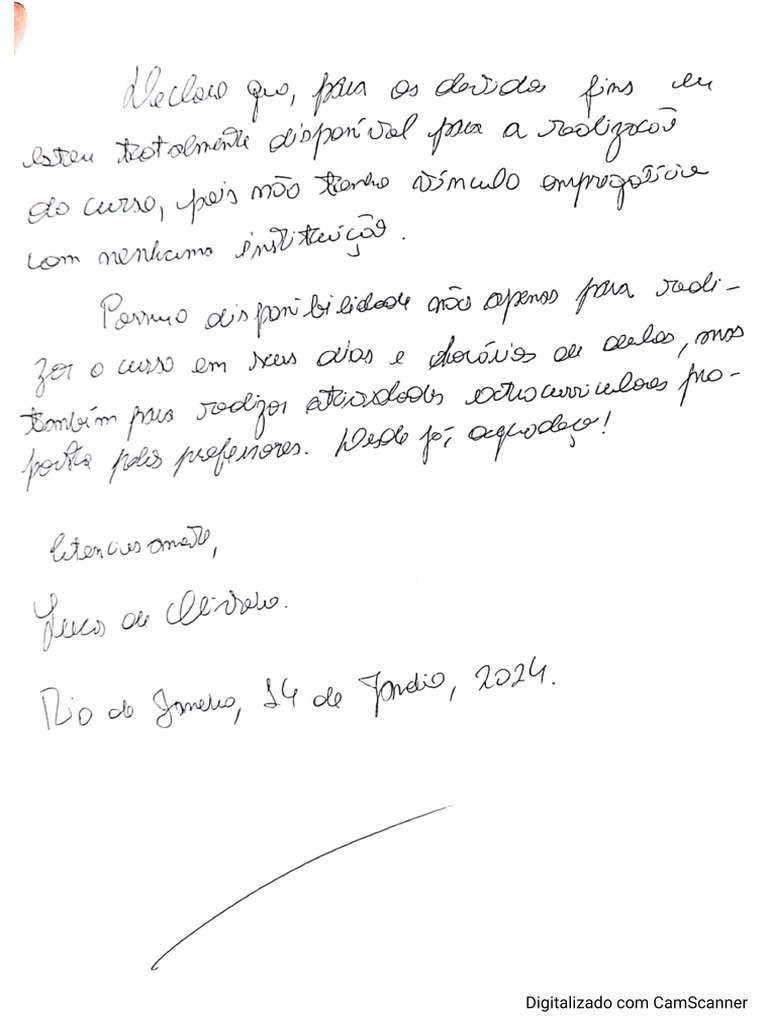 Declaro que, para os devidos fins eu
estou totalmente disponível para a realização
do curso, pois não tenho vínculo empregatício
com nenhuma instituição.
Possuo disponibilidade não apenas para reali-
zar o curso em seus dias e horários de aulas, mas
também para realizar atividades extracurriculares pro-
posta pelos professores. Desde já, agradeço!
Atenciosamente,
de Oliveira.
Rio de Janeiro, 14 de 2024.
Digitalizado com CamScanner